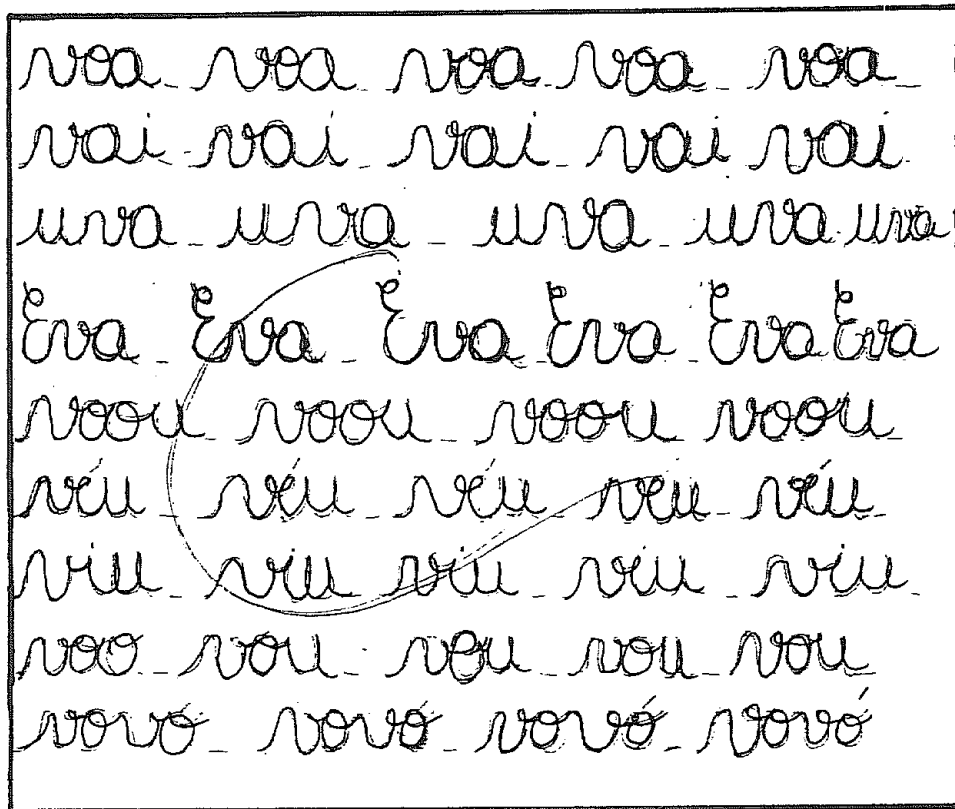 voa voa voa voa voa
vai vai vai vai vai
uva uva uva uva uva
Eva Eva Eva Eva Eva Eva
voou voou voou voou
véu véu véu véu véu
viu viu viu viu viu
voo vou vou vou vou
vovó vovó vovó vovó